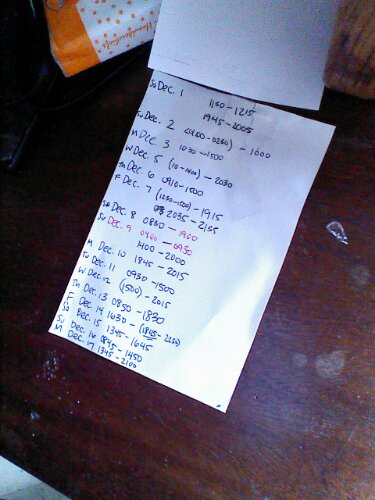 Sa Dec. 1
1100-1215
1945-2005
Su Dec. 2 - 1600
M Dec. 3 1030-1500
W Dec. 5 - 2030
Th Dec. 6 0910-1500
F Dec. 7 - 1915
2035-2135
Sa Dec. 8 0830-1900
Su Dec. 9 0400-0930
1400-2000
M Dec. 10 1845-2015
Tu Dec. 11 0930-1500
W Dec. 12 (1500)-2015
Th Dec. 13 0850-1830
F Dec. 14 1630-
Sa Dec. 15 1345-1645
Su Dec. 16 0845-1450
M Dec. 17 1345-2100